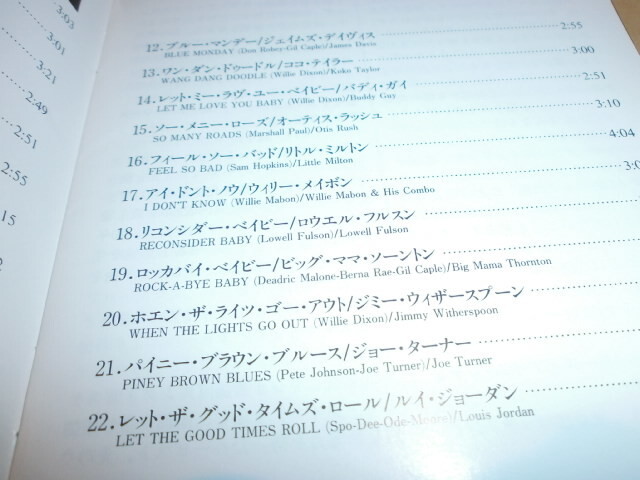 3:03
3:01
3:21
2:49
2:51
2:55
15
12.ブルー・マンデー/ジェイムズ・デイヴィス 2:55
BLUE MONDAY (Don Robey-Gil Caple)/James Davis
13.ワン・ダン・ドゥードル/ココ・テイラー 3:00
WANG DANG DOODLE (Willie Dixon)/Koko Taylor
14.レット・ミー・ラヴ・ユー・ベイビー/バディ・ガイ 2:51
LET ME LOVE YOU BABY (Willie Dixon)/Buddy Guy
15.ソー・メニー・ローズ/オーティス・ラッシュ 3:10
SO MANY ROADS (Marshall Paul)/Otis Rush
16.フィール・ソー・バッド/リトル・ミルトン 4:04
FEEL SO BAD (Sam Hopkins)/Little Milton
17.アイ・ドント・ノウ/ウィリー・メイボン
I DON'T KNOW (Willie Mabon)/Willie Mabon & His Combo
18.リコンシダー・ベイビー/ロウエル・フルスン
RECONSIDER BABY (Lowell Fulson)/Lowell Fulson
19.ロッカバイ・ベイビー/ビッグ・ママ・ソーントン
ROCK-A-BYE BABY (Deadric Malone-Berna Rae-Gil Caple)/Big Mama Thornton
20.ホエン・ザ・ライツ・ゴー・アウト/ジミー・ウィザースプーン
WHEN THE LIGHTS GO OUT (Willie Dixon)/Jimmy Witherspoon
21.パイニー・ブラウン・ブルース/ジョー・ターナー
PINEY BROWN BLUES (Pete Johnson-Joe Turner)/Joe Turner
22.レット・ザ・グッド・タイムズ・ロール/ルイ・ジョーダン
LET THE GOOD TIMES ROLL (Spo-Dee-Ode-Moore)/Louis Jordan